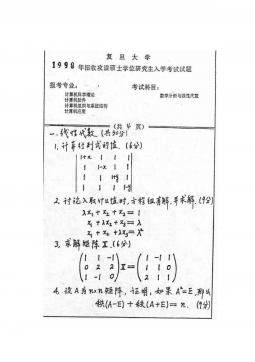 复旦大学
1998年招收攻读硕士学位研究生入学考试试题
报考专业： 考试科目：
计算机科学理论 数学分析与线性代数
计算机软件
计算机组织与系统结构
计算机应用
(共4页)
一、线性代数 (共30分)
1. 计算行列式的值. (6分)
|1+x 1 1 1|
|1 1-x 1 1|
|1 1 1+y 1|
|1 1 1 1-y|
2. 讨论λ取什么值时,方程组有解,并求解. (9分)
λx₁+x₂+x₃=1
x₁+λx₂+x₃=λ
x₁+x₂+λx₃=λ²
3. 求解矩阵X. (6分)
(1 1 -1) (1 -1 1)
(0 2 2) X = (1 1 0)
(1 -1 0) (2 1 1)
4. 设A为n×n矩阵, 证明, 如果A²=E, 那么
秩(A-E)+秩(A+E)=n. (9分)